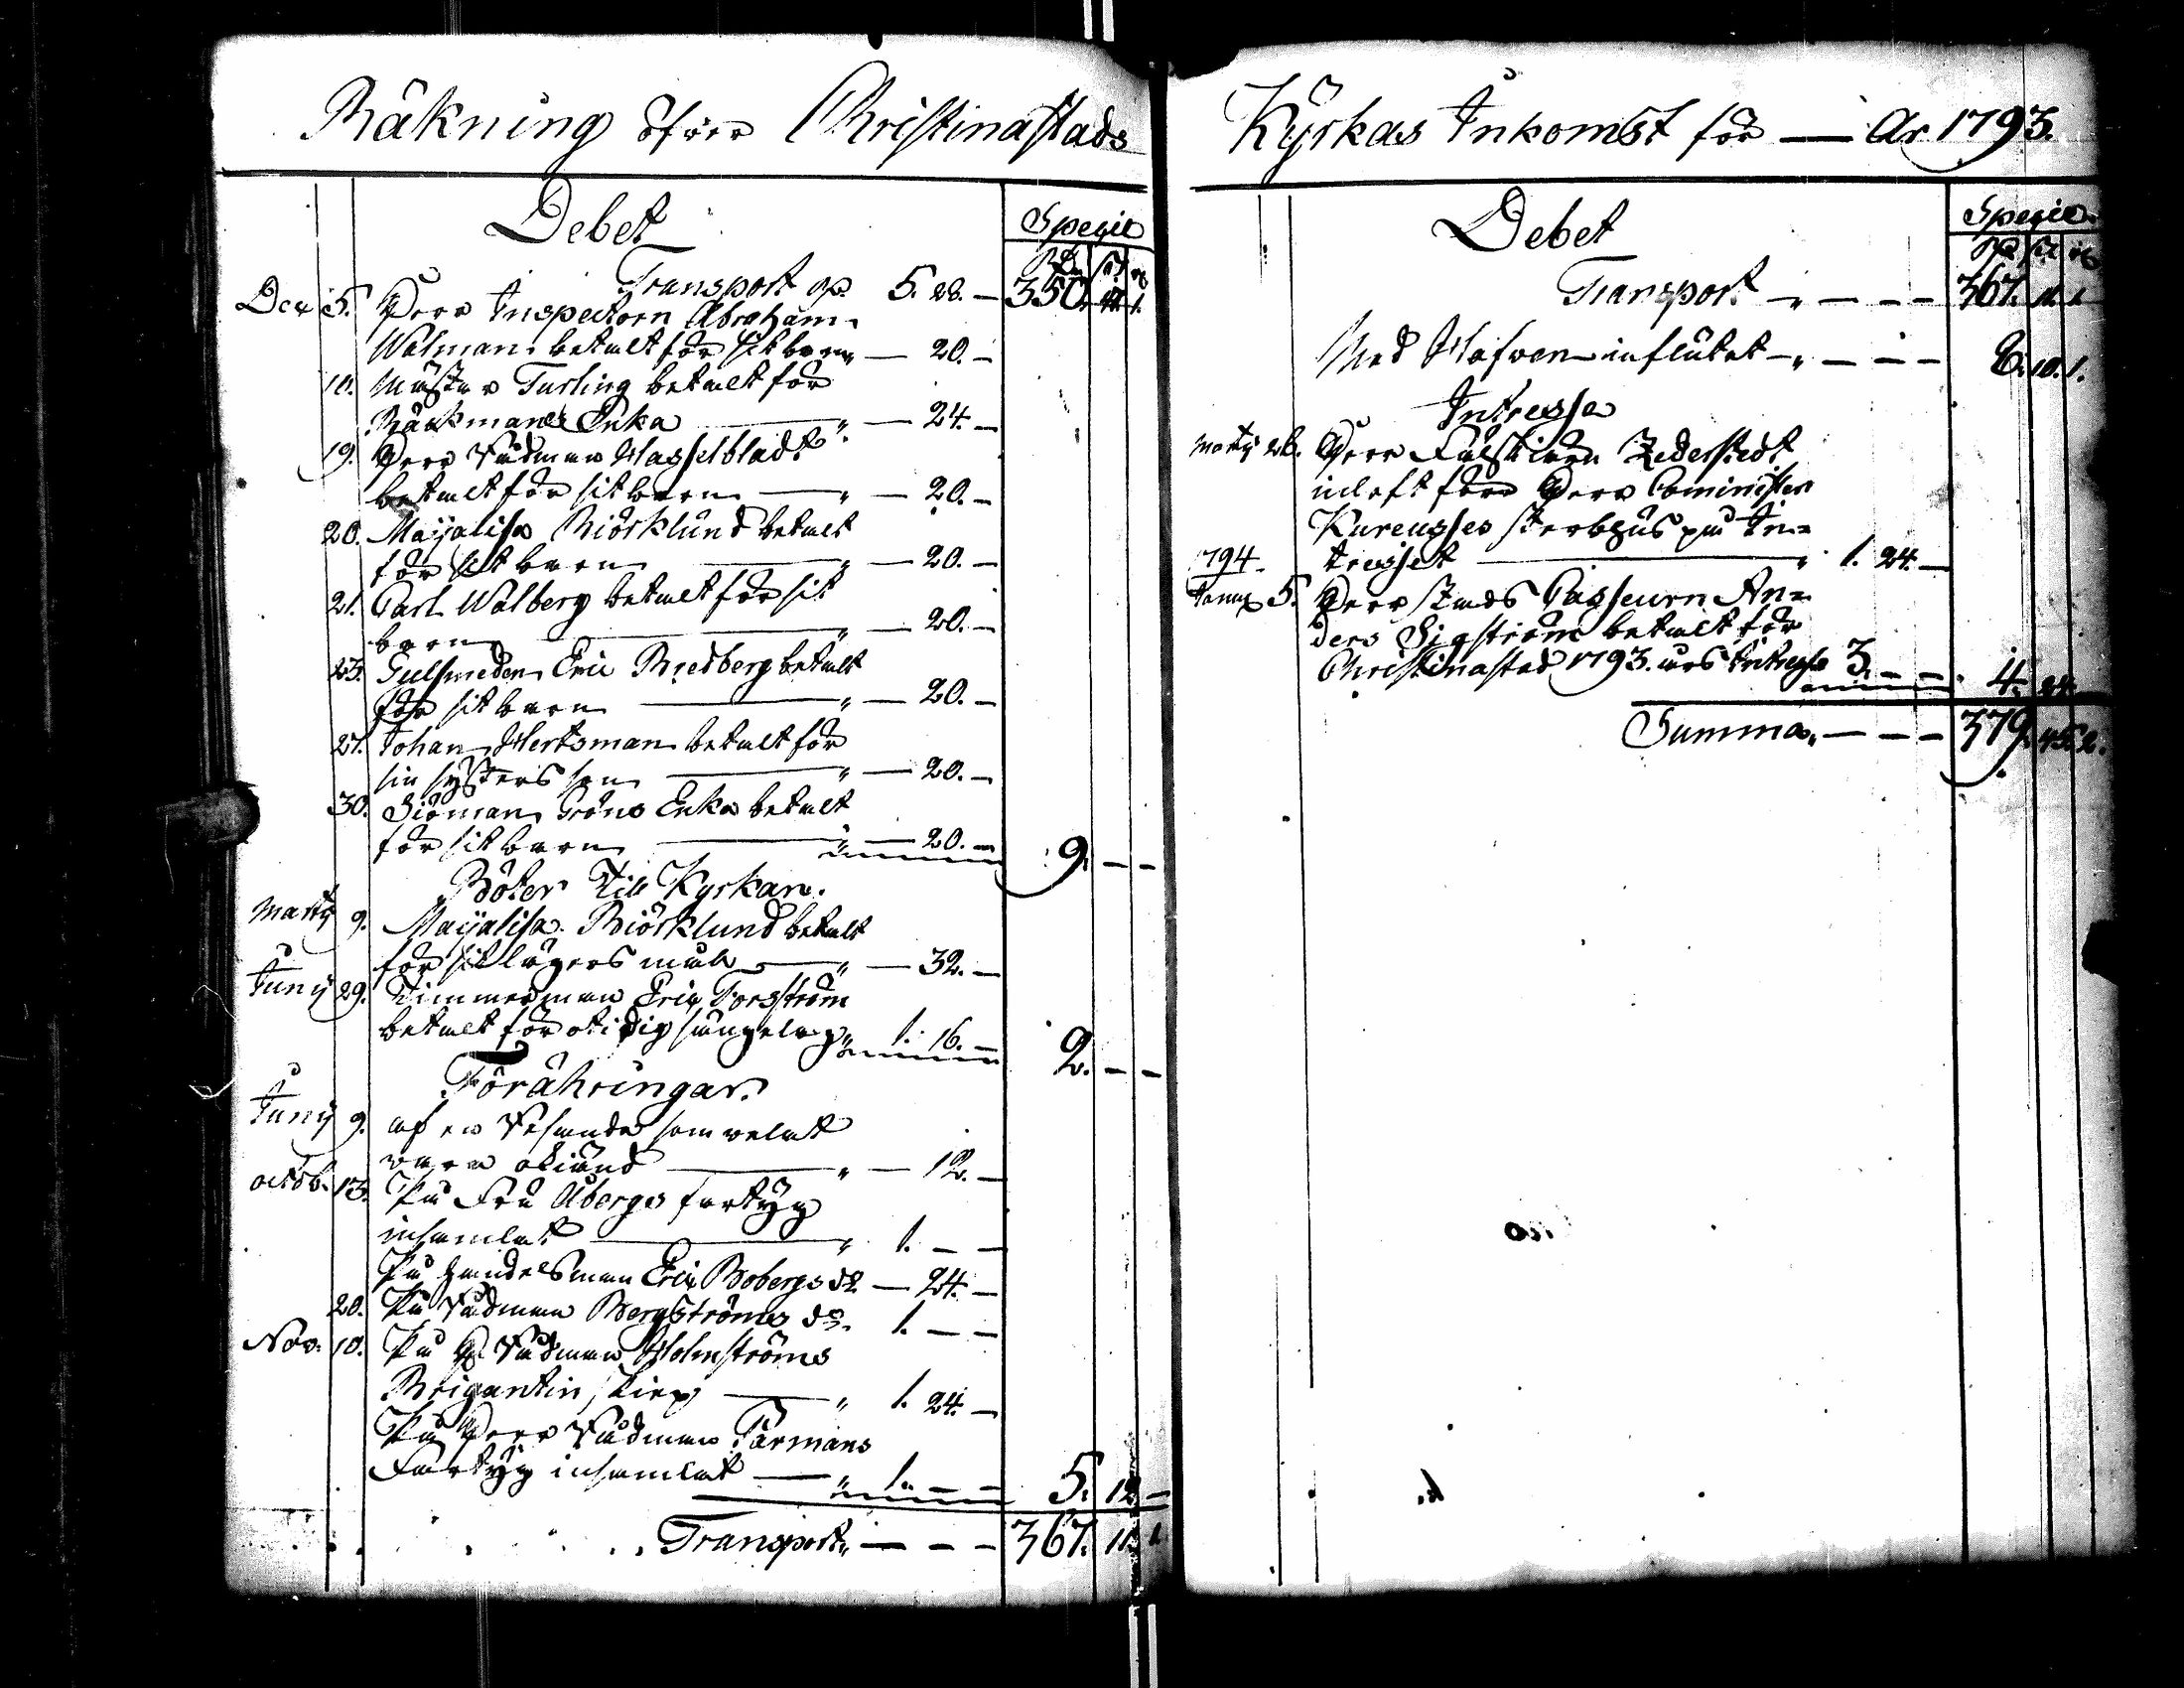 Räkning öfver Christinæstads
Debet
Specie
Rd. sk. rs
Transport rd. 5. 28. — 350. 47. 1.
Dec 5. Herr Inspectorn Abraham
Walman betalt för sit barn " — 20. —
10. Mäster Turling betalt för
Bäckmans Enka " — 24. —
19. Herr Rådman Hasselbladt
betalt för sit barn " — 20. —
20. Maijalisa Biörklund betalt
för sit barn " — 20. —
21. Carl Walberg betalt för sit
barn " — 20. —
23. Gulsmeden Eric Bredberg betalt
för sit barn " — 20. —
27. Johan Hertsman betalt för
sin systers son " — 20. —
30. Siöman Gröns Enka betalt
för sit barn " — 20. — 9. — —
Böter till Kyrkan.
Martij 9. Maijalisa Biörklund betalt
för sit lägersmål " — 32. —
Junij 29. Timmerman Eric Forsström
betalt för otidig sängelag " 1. 16. — 2. — —
Förähringar.
Junij 9. af en Resande som velat
vara okiänd " — 12. —
Octob. 13. På Fru Åbergs fartyg
insamlat " 1. — —
På handelsman Eric Bobergs do — 24. —
20. På Rådman Bergströms do 1. — —
Nov. 10. På H. Rådman Holmströms
Brigantin skiep " 1. 24. —
På Herr Rådman Färmans
Fartyg insamlat " 1. — — 5. 12. —
Transport " — — — 367. 11. 1.
Kyrkas Inkomst för — År 1793.
Debet
Specie
Rd. sk. rs
Transport " — — — 367. 11. 1.
Med Hafven influtet " — — — 8. 10. 1.
Intresse
Martij 28. Herr Fältskiären Zederstedt
inlöst före Herr Cominister
Kureuses sterbhus på In=
tresset " 1. 24. —
1794
Januarii 5. Herr stads Casseurn An=
ders Sigström betalt för
Christinæstad 1793. års Intresse 3. — — 4. 24.
Summa " — — — 379. 45. 2.